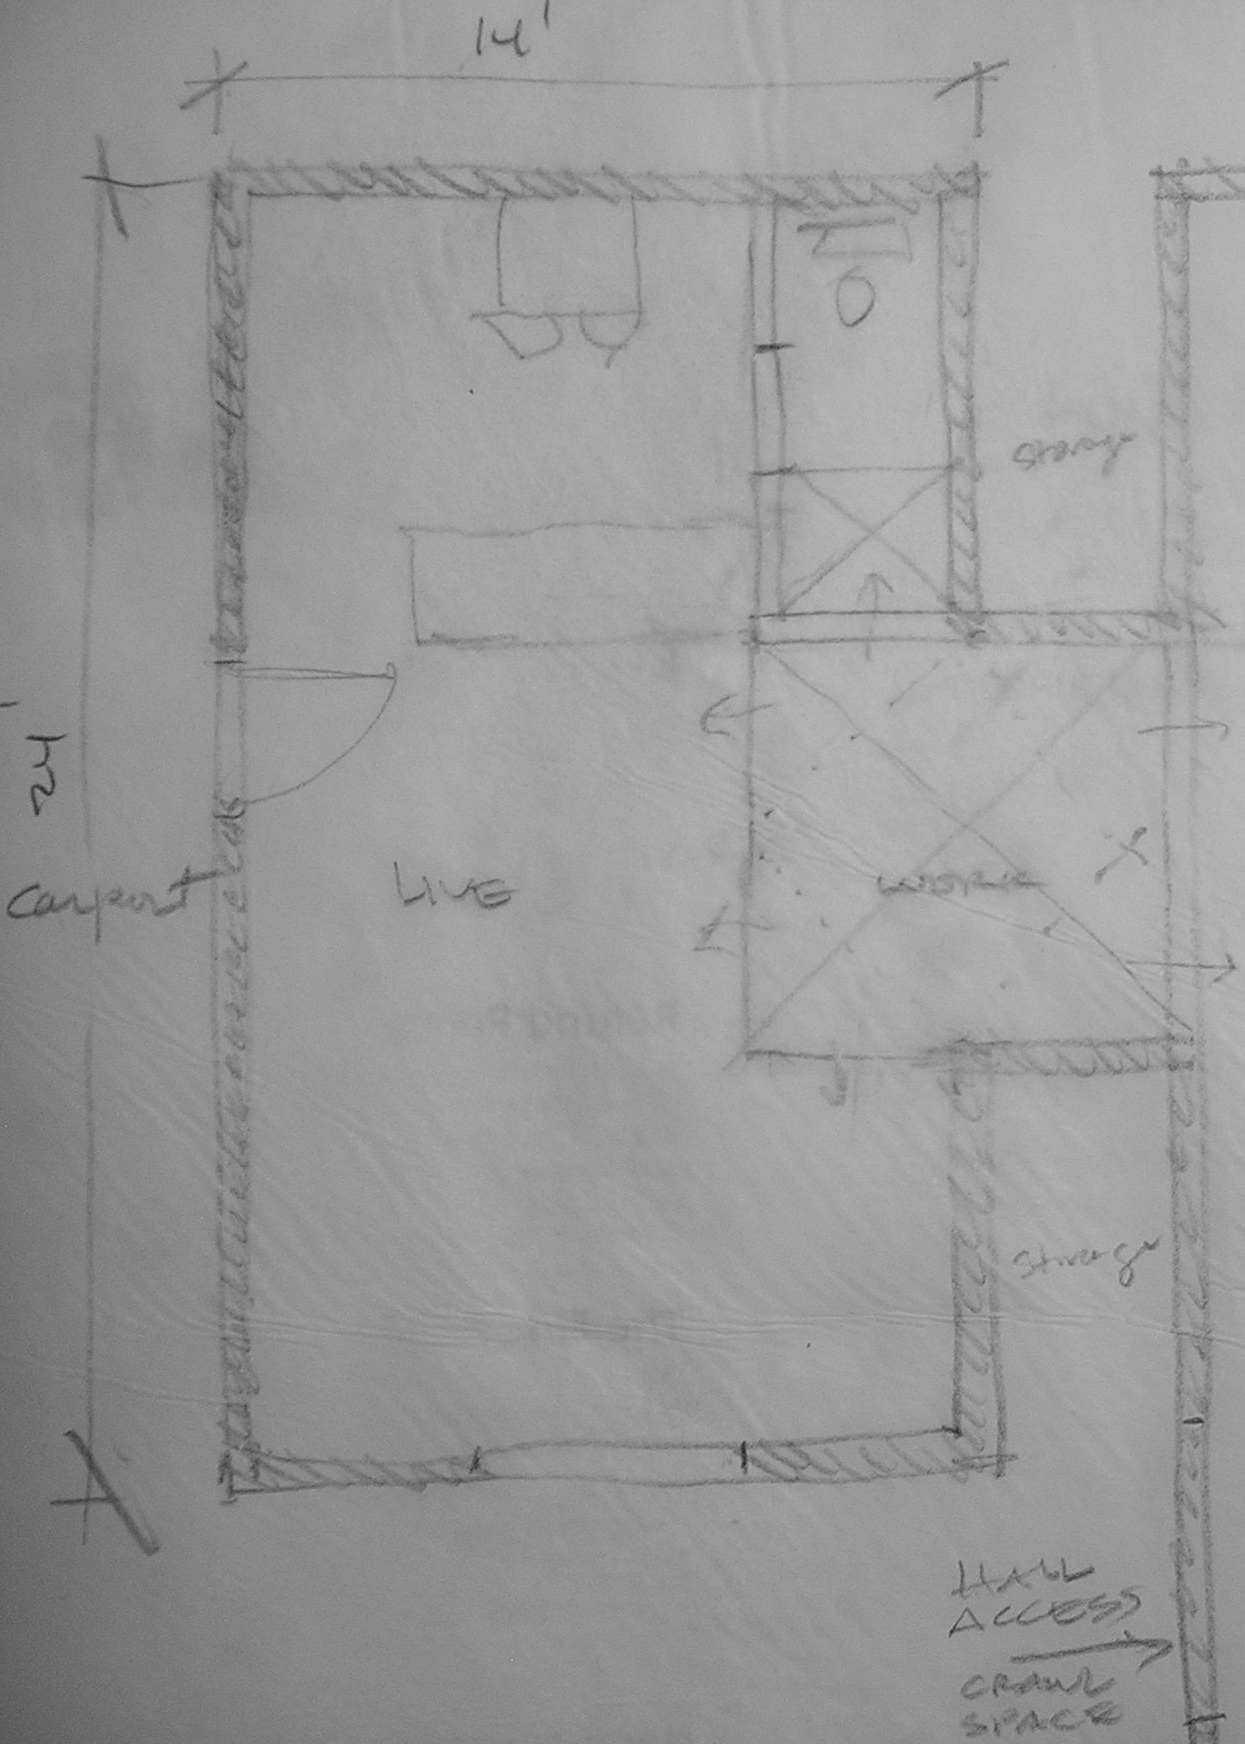 14'
Storage
24'
Carport
LIVE
WORK
Storage
HALL
ACCESS
CRAWL
SPACE